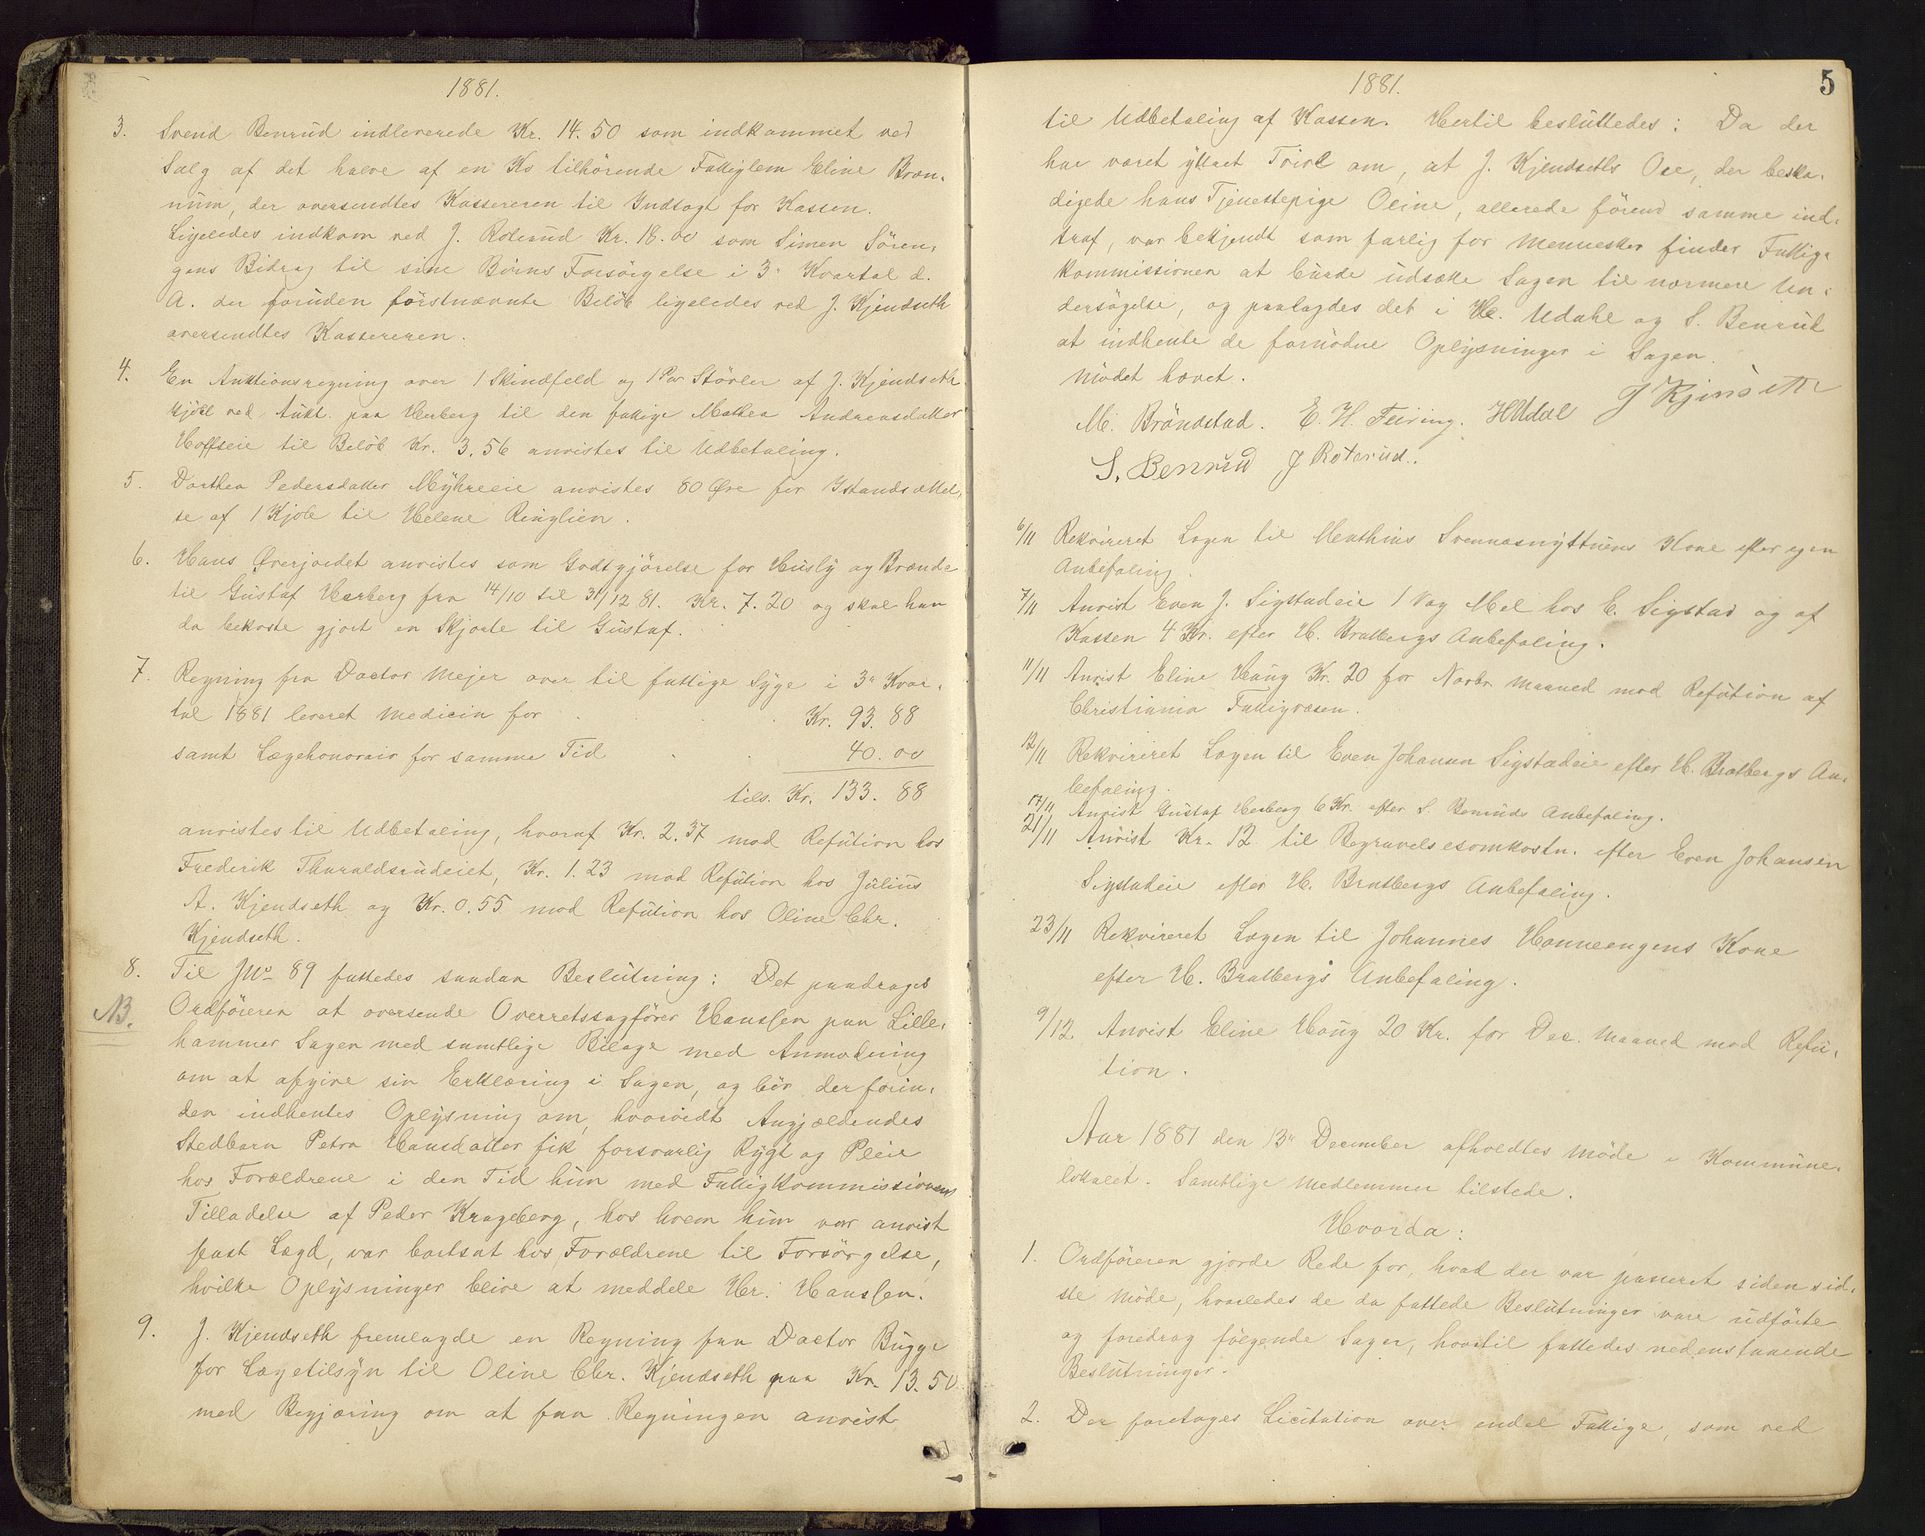 1881.
3. Svend Benrud indleverede Kr. 14.50 som indkommet ved
Salg af det halve af en Ko tilhørende Fattiglem Eline Bræn-
num, der oversendtes Kassereren til Indtægt for Kassen.
Ligeledes indkom ved J. Roterud Kr. 18.00 som Simen Sören-
gens Bidrag til sine Børns Forsörgelse i 3die Kvartal d.
A. der foruden förstnævnte Belöb ligeledes ved J. Kjendseth
oversendtes Kassereren.
4. En Auktionsregning over 1 Skindfeld og 1 Par Stövler af J. Kjendseth
kjöbt ved Aukt. paa Herberg til den fattige Mathea Andreasdatter
Hoffseie til Belöb Kr. 3.56 anvistes til Udbetaling.
5. Dorthea Pedersdatter Myhreeie anvistes 80 Øre for Istandsættel-
se af 1 Kjole til Helene Ringlien.
6. Hans Øverjordet anvistes som Godtgjörelse for Husly og Brænde
til Gustaf Herberg fra 14/10 til 31/12 81. Kr. 7.20 og skal han
da bekoste gjort en Skjorte til Gustaf.
7. Regning fra Doctor Mejer over til fattige Syge i 3die Kvar-
tal 1881 leveret Medicin for . . Kr. 93.88
samt Lægehonorar for samme Tid . . 40.00
tils. Kr. 133.88
anvistes til Udbetaling, hvoraf Kr. 2.37 mod Refution hos
Frederik Tharaldsrudeiet, Kr. 1.23 mod Refution hos Julius
A. Kjendseth og Kr. 0.55 mod Refution hos Oline Chr.
Kjendseth.
8. Til JNo 89 fattedes saadan Beslutning: Det paadrages
NB. Ordföreren at oversende Overretssagförer Hanssen paa Lille-
hammer Sagen med samtlige Bilage med Anmodning
om at afgive sin Erklæring i Sagen, og bör der forin-
den indhentes Oplysning om, hvorvidt Angjældendes
Stedbarn Petra Hansdatter fik forsvarlig Rygt og Pleie
hos Forældrene i den Tid hun med Fattigkommissionens
Tilladelse af Peder Krageberg, hos hvem hun var anvist
fast Lægd, var bortsat hos Forældrene til Forsörgelse,
hvilke Oplysninger blive at meddele Hr. Hanssen.
9. J. Kjendseth fremlagde en Regning fra Doctor Bugge
for Lægetilsyn til Oline Chr. Kjendseth paa Kr. 13.50
med Begjæring om at faa Regningen anvist
1881.
5
til Udbetaling af Kassen. Hertil besluttedes: Da der
har været yttret Tvivl om, at J. Kjendseths Oxe, der beska-
digede hans Tjenestepige Oline, allerede förend samme ind-
traf, var bekjendt som farlig for Mennesker finder Fattig-
kommissionen at burde udsætte Sagen til nærmere Un-
dersögelse, og paalagdes det i H. Udahl og S. Benrud
at indhente de fornödne Oplysninger i Sagen.
Mödet hævet.
M. Bröndstad. E. H. Feiring. H Udal J Kjindseth
S. Benrud J Roterud.
6/11 Rekvireret Lægen til Menthius Svennæsnyttuens Kone efter egen
Anbefaling.
7/11 Anvist Even J. Sigstadeie 1 Vog Mel hos E. Sigstad og af
Kassen 4 Kr. efter H. Bratbergs Anbefaling.
11/11 Anvist Eline Haug Kr. 20 for Novbr. Maaned mod Refution af
Christiania Fattigvæsen.
12/11 Rekvireret Lægen til Even Johansen Sigstadeie efter H. Bratbergs An-
befaling.
14/11 Anvist Gustaf Herberg 6 Kr. efter S. Benruds Anbefaling.
21/11 Anvist Kr. 12 til Begravelsesomkostn. efter Even Johansen
Sigstadeie efter H. Bratbergs Anbefaling.
23/11 Rekvireret Lægen til Johannes Honneengens Kone
efter H. Bratbergs Anbefaling.
9/12. Anvist Eline Haug 20 Kr. for Dec. Maaned mod Refu-
tion.
Aar 1881 den 13de December afholdtes Möde i Kommune-
lokalet. Samtlige Medlemmer tilstede.
Hvorda:
1. Ordföreren gjorde Rede for, hvad der var passeret siden sid-
ste Möde, hvorledes de da fattede Beslutninger vare udförte
og foredrog fölgende Sager, hvortil fattedes nedenstaaende
Beslutninger.
2. Der foretoges Licitation over endel Fattige, som ved